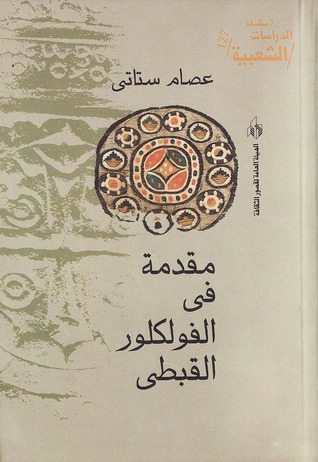 سلسلة
الدراسات
الشعبية
عصام ستاتى
الهيئة العامة لقصور الثقافة
مقدمة
فى
الفولكلور
القبطى